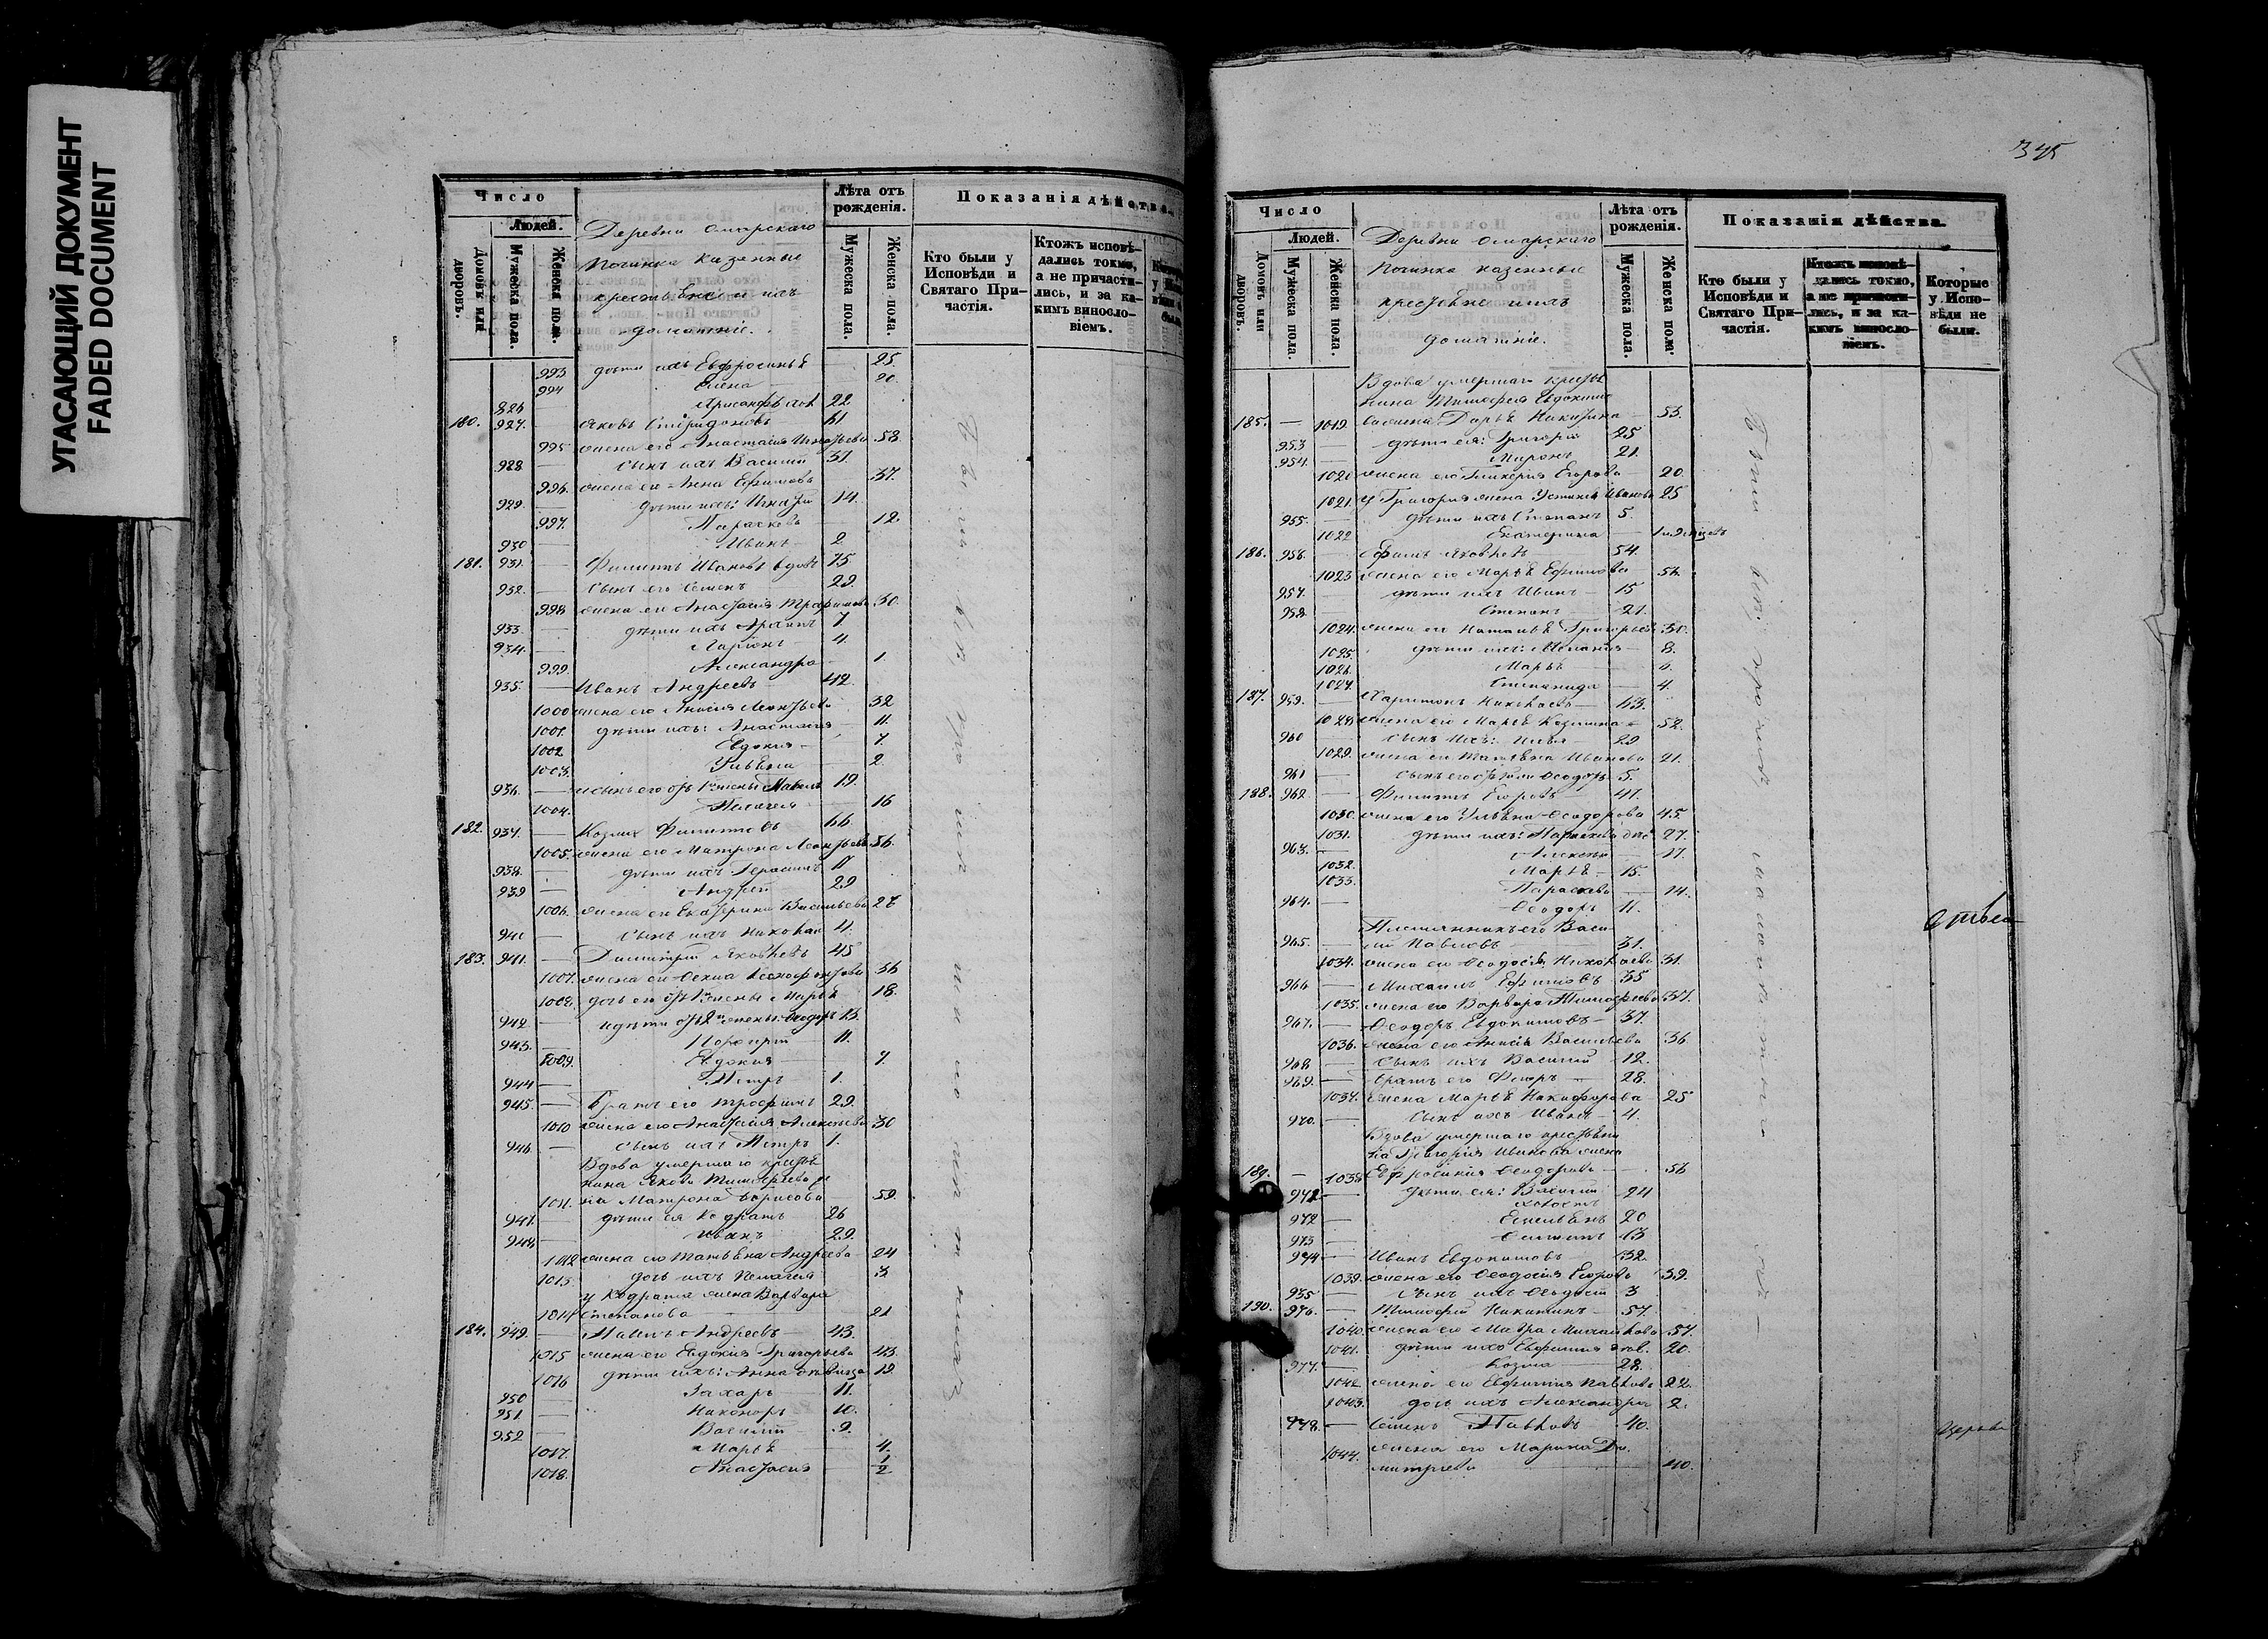 УГАСАЮЩИЙ ДОКУМЕНТ
FADED DOCUMENT
Число
Людей.
Домовъ или дворовъ.
Мужеска пола.
Женска пола.
Деревни Омарскаго
Починка казенные
крестьяне и ихъ
домашніе.
Лѣта отъ рожденія.
Мужеска пола.
Женска пола.
Показанія дѣйства.
Кто были у Исповѣди и Святаго Причастія.
Ктожъ исповѣдались токмо, а не причастились, и за какимъ винословіемъ.
993 дѣти ихъ Евфросинья 25.
994 Елена 20.
926 22.
180. 927. Яковъ Спиридоновъ 61
995 жена его Анастасія Игнатьева 58.
928 сынъ ихъ Василій 37.
996. жена его Анна Ефимова 37.
929. дѣти ихъ: Игнатій 14.
997. Параскева 12.
930 Иванъ 2.
181. 931. Филиппъ Ивановъ вдовъ 75
932. сынъ его Семенъ 29.
998 жена его Анастасія Трофимова 30.
933. дѣти ихъ Архипъ 7.
934. Ларіонъ 4.
999. Александра 1.
935. Иванъ Андреевъ 42.
1000 жена его Анисія Леонтьева 32
1001. дѣти ихъ: Анастасія 11.
1002 Евдокія 7.
1003. Ульяна 2.
936. и сынъ его отъ 1й жены Павелъ 19.
1004. Пелагея 16
182. 937. Козма Филипповъ 66.
1005. жена его Матрона Леонтьева 56.
938. дѣти ихъ Герасимъ 17
939 Андрей 29
1006. жена его Екатерина Васильева 28
940 сынъ ихъ Николай 4.
183. 941. Димитрій Яковлевъ 45
1007. жена его Фекла Ксенофонтова 36
1008. дочь его отъ 1й жены Марья 18.
942. и дѣти отъ 2й жены: Ѳеодоръ 13.
943. Порфирій 11.
1009. Евдокія 7.
944 Петръ 1.
945. Братъ его Трофимъ 29.
1010 жена его Анастасія Алексѣева 30
946. сынъ ихъ Петръ 1.
Вдова умершаго крестья
нина Якова Тимофеева
1011. Матрона Борисова 59.
947. дѣти ея Кодратъ 26
948 Иванъ 29.
1012 жена его Татьяна Андреева 24
1013. дочь ихъ Пелагея 3
у Кодрата жена Варвара
1014 Степанова 21
184. 949. Павелъ Андреевъ 43.
1015 жена его Евдокія Григорьева 43.
1016 дѣти ихъ: Анна дѣвица 19
950 Захаръ 11.
951 Никоноръ 10.
952 Василій 9.
1017. Марья 4.
1018. Анастасія 1/2
345
Число
Людей.
Домовъ или дворовъ.
Мужеска пола.
Женска пола.
Деревни Омарскаго
Починка казенные
крестьяне и ихъ
домашніе.
Лѣта отъ рожденія.
Мужеска пола.
Женска пола.
Показанія дѣйства.
Кто были у Исповѣди и Святаго Причастія.
Ктожъ исповѣдались токмо, а не причастились, и за какимъ винословіемъ.
Которые у Исповѣди не были.
Вдова умершаго крестья
нина Тимофея Евдокимо
185. 1019. Дарья Никитина 53.
953 дѣти ея: Григорій 25
954. Миронъ 21.
1020 жена его Гликерія Егорова 20.
1021. у Григорія жена Устинья Иванова 25
955. дѣти ихъ Степанъ 5.
1022 Екатерина
186. 956. Ефимъ Яковлевъ 54.
1023 жена его Марья Ефимова 54.
957. дѣти ихъ Иванъ 15
958 Степанъ 21.
1024. жена его Наталья Григорьева 30.
1025. дѣти ихъ: Меланія 8.
1026. Марья 6.
1027. Степанида 4.
187. 959. Харитонъ Николаевъ 63.
1028 жена его Марья Козмина 52.
960 сынъ ихъ: Илья 29
1029. жена его Татьяна Иванова 21.
961 5.
188. 962. Филиппъ Егоровъ 41.
1030. жена его Ульяна Ѳеодорова 45.
1031. дѣти ихъ: Параскева 27.
963. Алексѣй 17.
1032. Марья 15.
1033. Параскева 14.
964. Ѳеодоръ 11.
Племянникъ его Васи
965. лій Павловъ 31.
1034. жена его Ѳеодосія Николаева 31.
966 Михаилъ Ефимовъ 35
1035. жена его Варвара Тимофеева 37.
967. Ѳеодоръ Евдокимовъ 37.
1036. жена его Анисія Васильева 36
968 сынъ ихъ Василій 12.
969. братъ его Федоръ 28.
1037. жена Марья Никифорова 25
970. сынъ ихъ Иванъ 4.
Вдова умершаго крестьяни
на Григорія Иванова жена
189. 1038 Евфросинія Ѳеодорова 56
971 дѣти ея: Василій 24
холостъ
972 Емельянъ 20
973 Филиппъ 13
974 Иванъ Евдокимовъ 32.
1039. жена его Ѳеодосія Егорова 39.
975 сынъ ихъ Ѳеодотъ 3
190. 976. Тимофей Никитинъ 57.
1040. жена его Михайлова 57.
1041. дѣти ихъ Евфимія 20.
977. Козма 28.
1042. жена его Евфимія Павлова 22.
1043. дочь ихъ Александра 2.
978. Семенъ Павловъ 40.
1044. жена его Марина Ди
митріева 40.